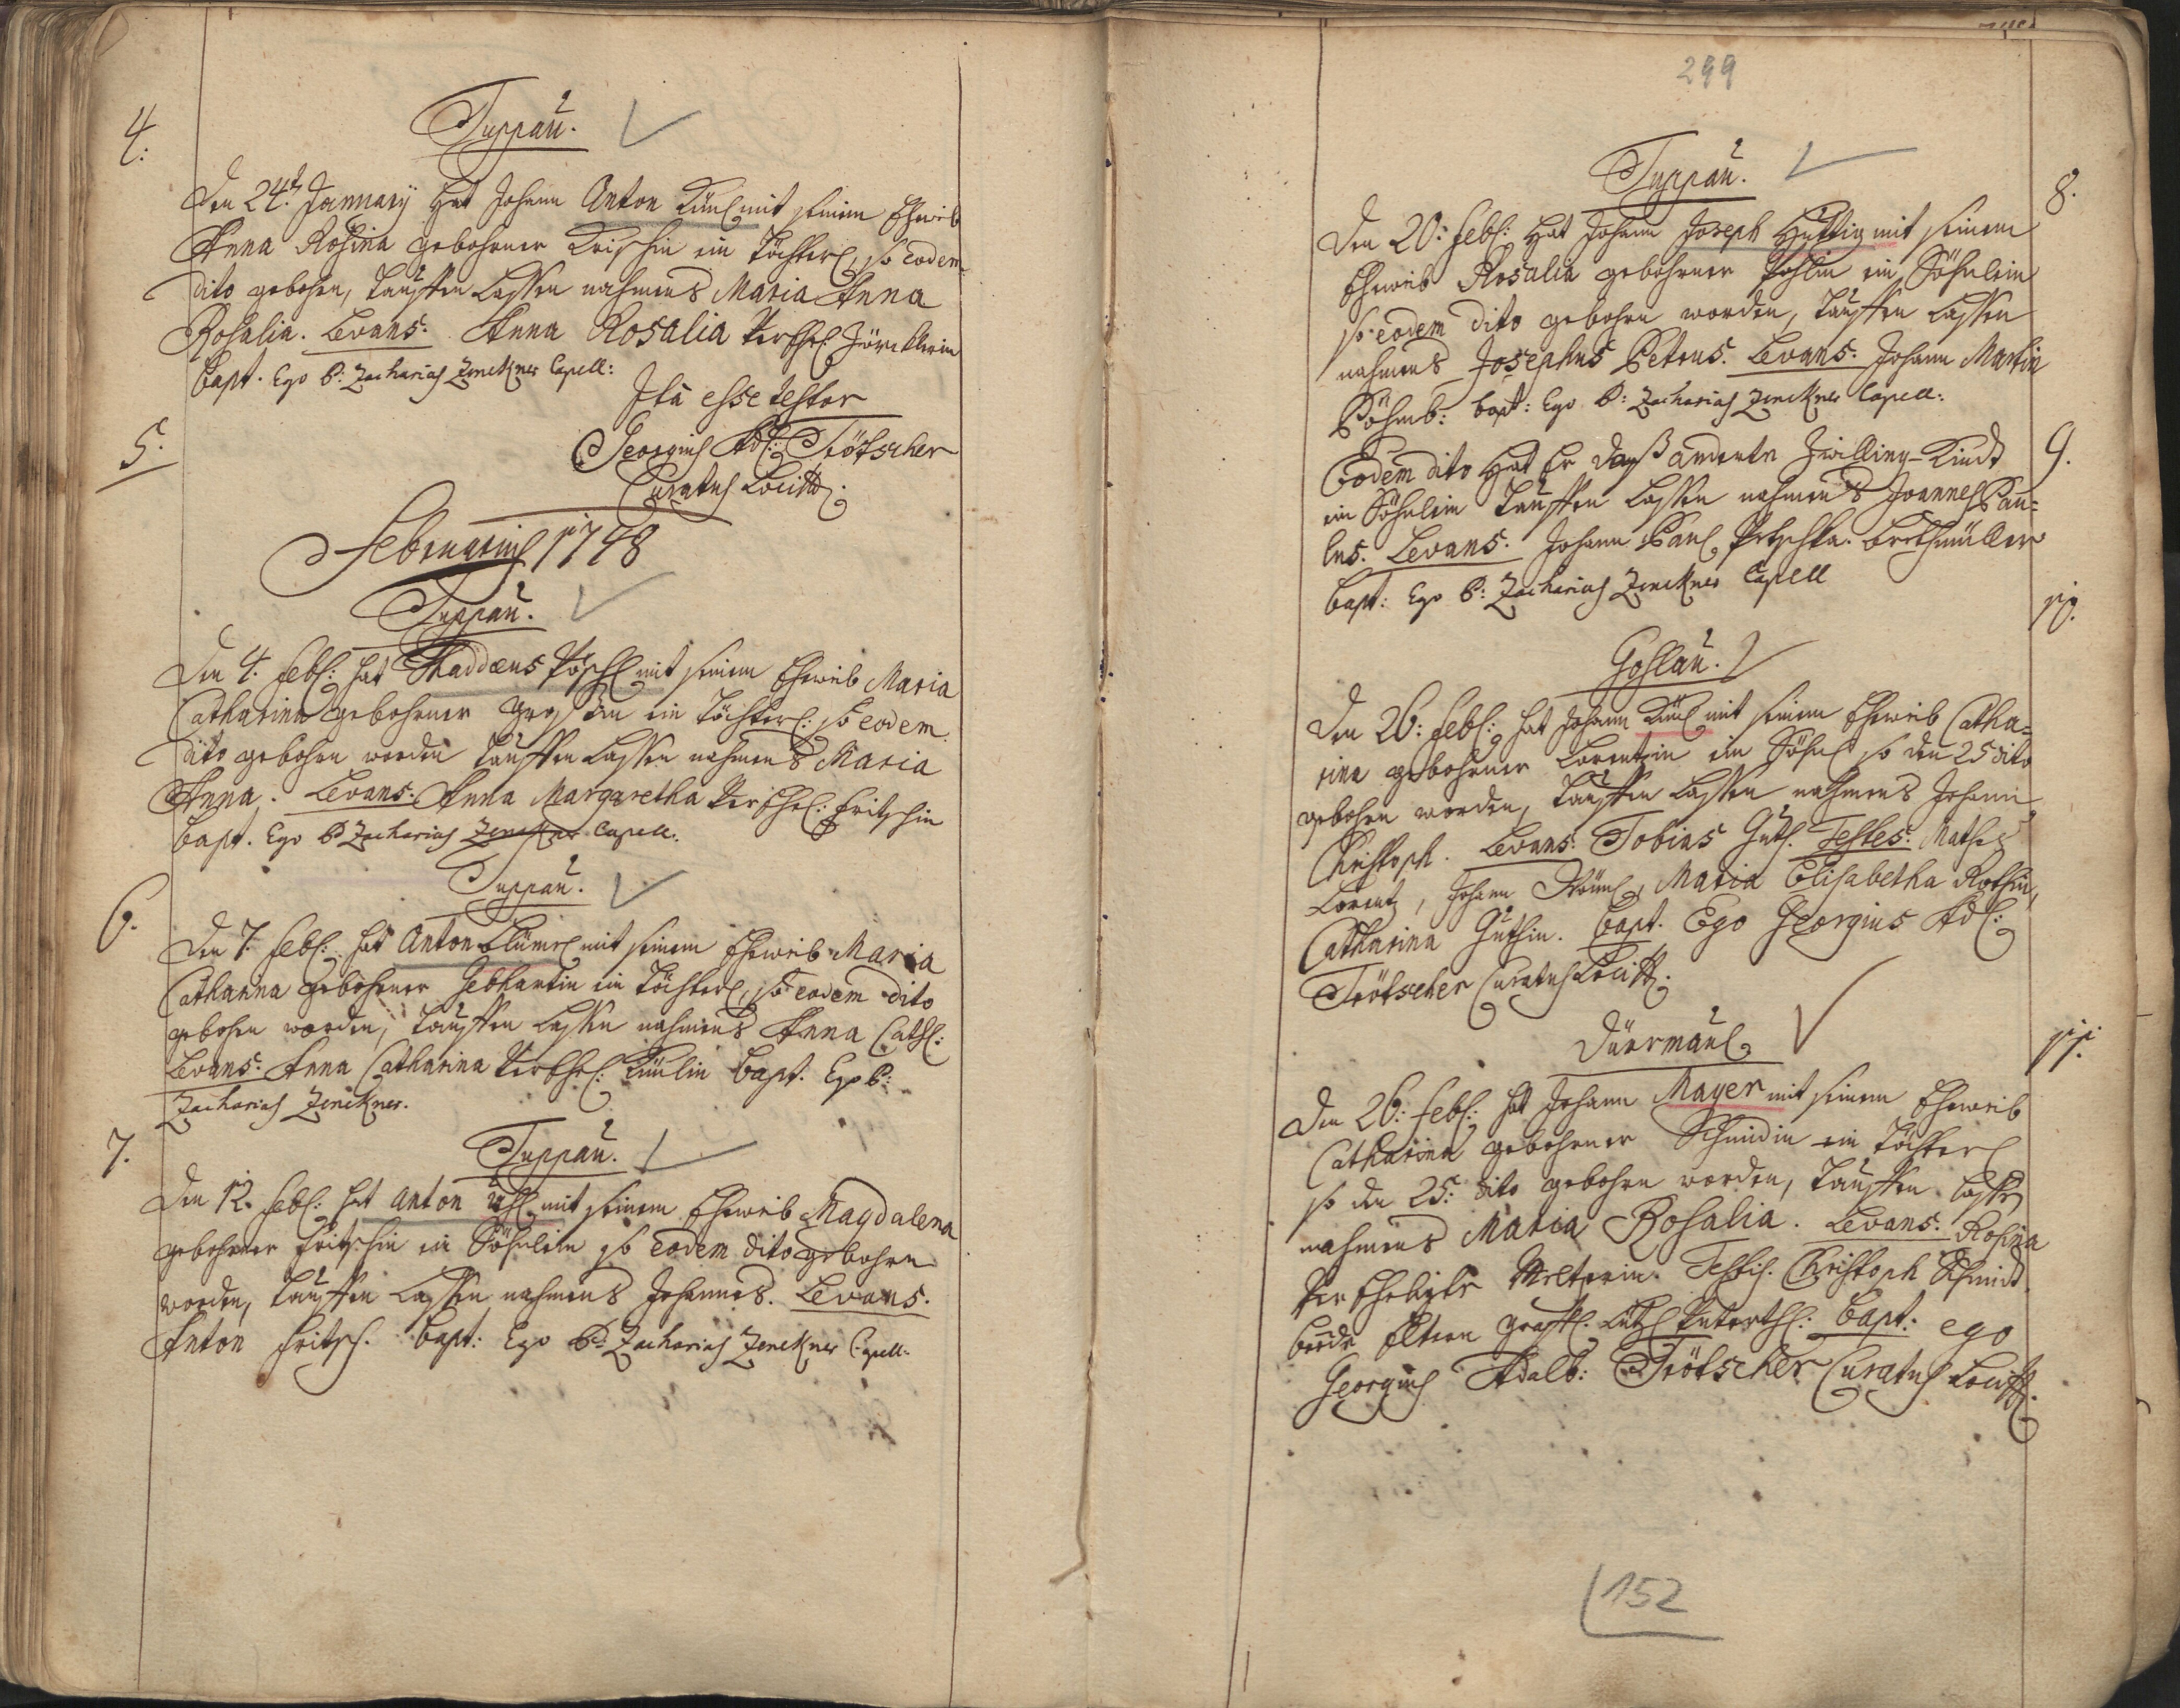 4.
Duppaŭ.
Den 24t January hat Johann Anton Künl mit seinem Eheweib
Anna Rosina gebohrner Krischin ein Töchterl, so eodem
dito gebohrn, tauffen lassen nahmens Maria Anna
Rosalia. Levans: Anna Rosalia Verehel:
Bapt. Ego P: Zacharias Zenckner Capell:
Ita esse testor
Georgius Adl: Trötscher
Curatus Loci
5.
Februarius 1748
Duppaŭ.
Den 4. Febr: hat Thaddæus Pöschl mit seinem Eheweib Maria
Catharina gebohrner ein Töchterl: so eodem
dito gebohrn worden tauffen lassen nahmens Maria
Anna. Levans: Anna Margaretha Verehel: Fritschin
Bapt. Ego P Zacharias Zenckner Capell.
Duppaŭ.
6.
Den 7. Febr: hat Anton Blümel mit seinem Eheweib Maria
Catharina gebohrner Gebhartin ein Töchterl, so eodem dito
gebohrn worden, tauffen lassen nahmens Anna Cath:
Levans: Anna Catharina Verehel: Künlin Bapt. Ego P:
Zacharias Zenckner.
7.
Duppaŭ.
Den 12. Febr: hat Anton mit seinem Eheweib Magdalena
gebohrner Fritschin ein Söhnlein so eodem dito gebohrn
worden, tauffen lassen nahmens Johannes. Levans.
Anton Fritsch. Bapt: Ego P Zacharias Zenckner Capell.
299
Duppaŭ.
8.
Den 20: Febr: hat Johann Joseph Hüttig mit seinem
Eheweib Rosalia gebohrner Pohlin ein Söhnlein
so eodem dito gebohrn worden, tauffen lassen
nahmens Josephus Petrus. Levans: Johann Martin
Böhmb: Bapt: Ego P: Zacharias Zenckner Capell:
9.
Eodem dito hat Er daß anderte Zwilling-Kindt
ein Söhnlein tauffen lassen nahmens Joannes Pau=
lus. Levans: Johann Paul
Bapt: Ego P: Zacharias Zenckner Capell
10.
Goslaŭ.
Den 26: Febr: hat Johann Künl mit seinem Eheweib Catha=
rina gebohrner Lorentzin ein Söhnl so den 25 dito
gebohrn worden, tauffen lassen nahmens Johann
Christoph. Levans: Tobias Guth. Testes: Mathes
Lorentz, Johann Maria Elisabetha Rothin,
Catharina Guthin. Bapt. Ego Georgius Adl:
Trötscher Curatus Loci
Dürmaul
11.
Den 26: Febr: hat Johann Mayer mit seinem Eheweib
Catharina gebohrner Schmidin ein Töchterl
so den 25: dito gebohrn worden, tauffen lassen
nahmens Maria Rosalia. Levans: Rosina
Vereheligte Testis. Christoph Schmidt.
beede Eltern Bapt: ego
Georgius Adalb: Trötscher Curatus Loci
152